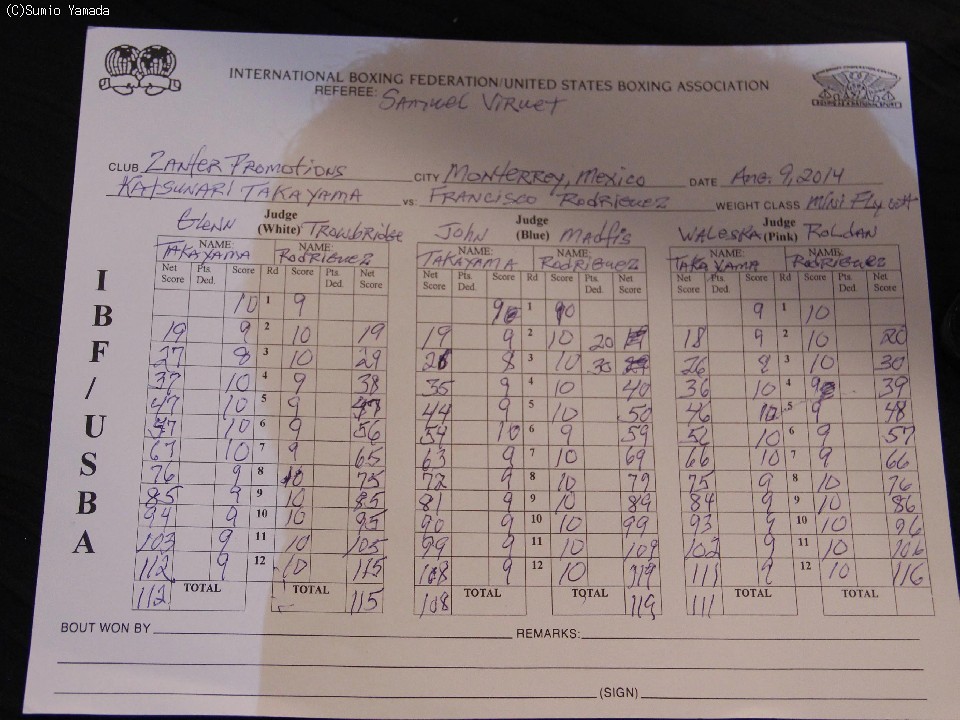 (C)Sumio Yamada
INTERNATIONAL BOXING FEDERATION/UNITED STATES BOXING ASSOCIATION
REFEREE: Samuel Viruet
CLUB Zanfer Promotions CITY Monterrey, Mexico DATE Aug. 9, 2014
KATSUNARI TAKAYAMA vs: FRANCISCO RODRIGUEZ WEIGHT CLASS Mini Fly wt
Glenn Judge (White) Trowbridge John Judge (Blue) Madfis WALESKA Judge (Pink) Roldan
NAME: TAKAYAMA NAME: RODRIGUEZ NAME: TAKAYAMA NAME: RODRIGUEZ NAME: TAKAYAMA NAME: RODRIGUEZ
Net Score Pts. Ded. Score Rd Score Pts. Ded. Net Score Net Score Pts. Ded. Score Rd Score Pts. Ded. Net Score Net Score Pts. Ded. Score Rd Score Pts. Ded. Net Score
10 1 9 9 1 10 9 1 10
19 9 2 10 19 19 9 2 10 20 18 9 2 10 20
27 8 3 10 29 28 8 3 10 30 26 8 3 10 30
37 10 4 9 38 35 9 4 10 40 36 10 4 9 39
47 10 5 9 47 44 9 5 10 50 46 10 5 9 48
57 10 6 9 56 54 10 6 9 59 56 10 6 9 57
67 10 7 9 65 63 9 7 10 69 66 10 7 9 66
76 9 8 10 75 72 9 8 10 79 75 9 8 10 76
85 9 9 10 85 81 9 9 10 89 84 9 9 10 86
94 9 10 10 95 90 9 10 10 99 93 9 10 10 96
103 9 11 10 105 99 9 11 10 109 102 9 11 10 106
112 9 12 10 115 108 9 12 10 119 111 9 12 10 116
112 TOTAL TOTAL 115 108 TOTAL TOTAL 119 111 TOTAL TOTAL
IBF/USBA
BOUT WON BY REMARKS:
(SIGN)